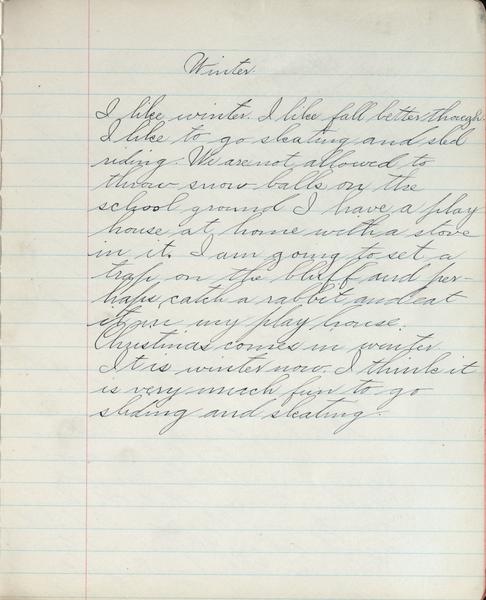 Winter.
I like winter. I like fall better though.
I like to go skating and sled
riding. We are not allowed to
throw snow balls on the
school ground I have a play
house at home with a stove
in it. I am going to set a
trap on the bluff and per-
haps catch a rabbit and eat
it in my play house.
Christmas comes in winter
It is winter now. I think it
is very much fun to go
sliding and skating.